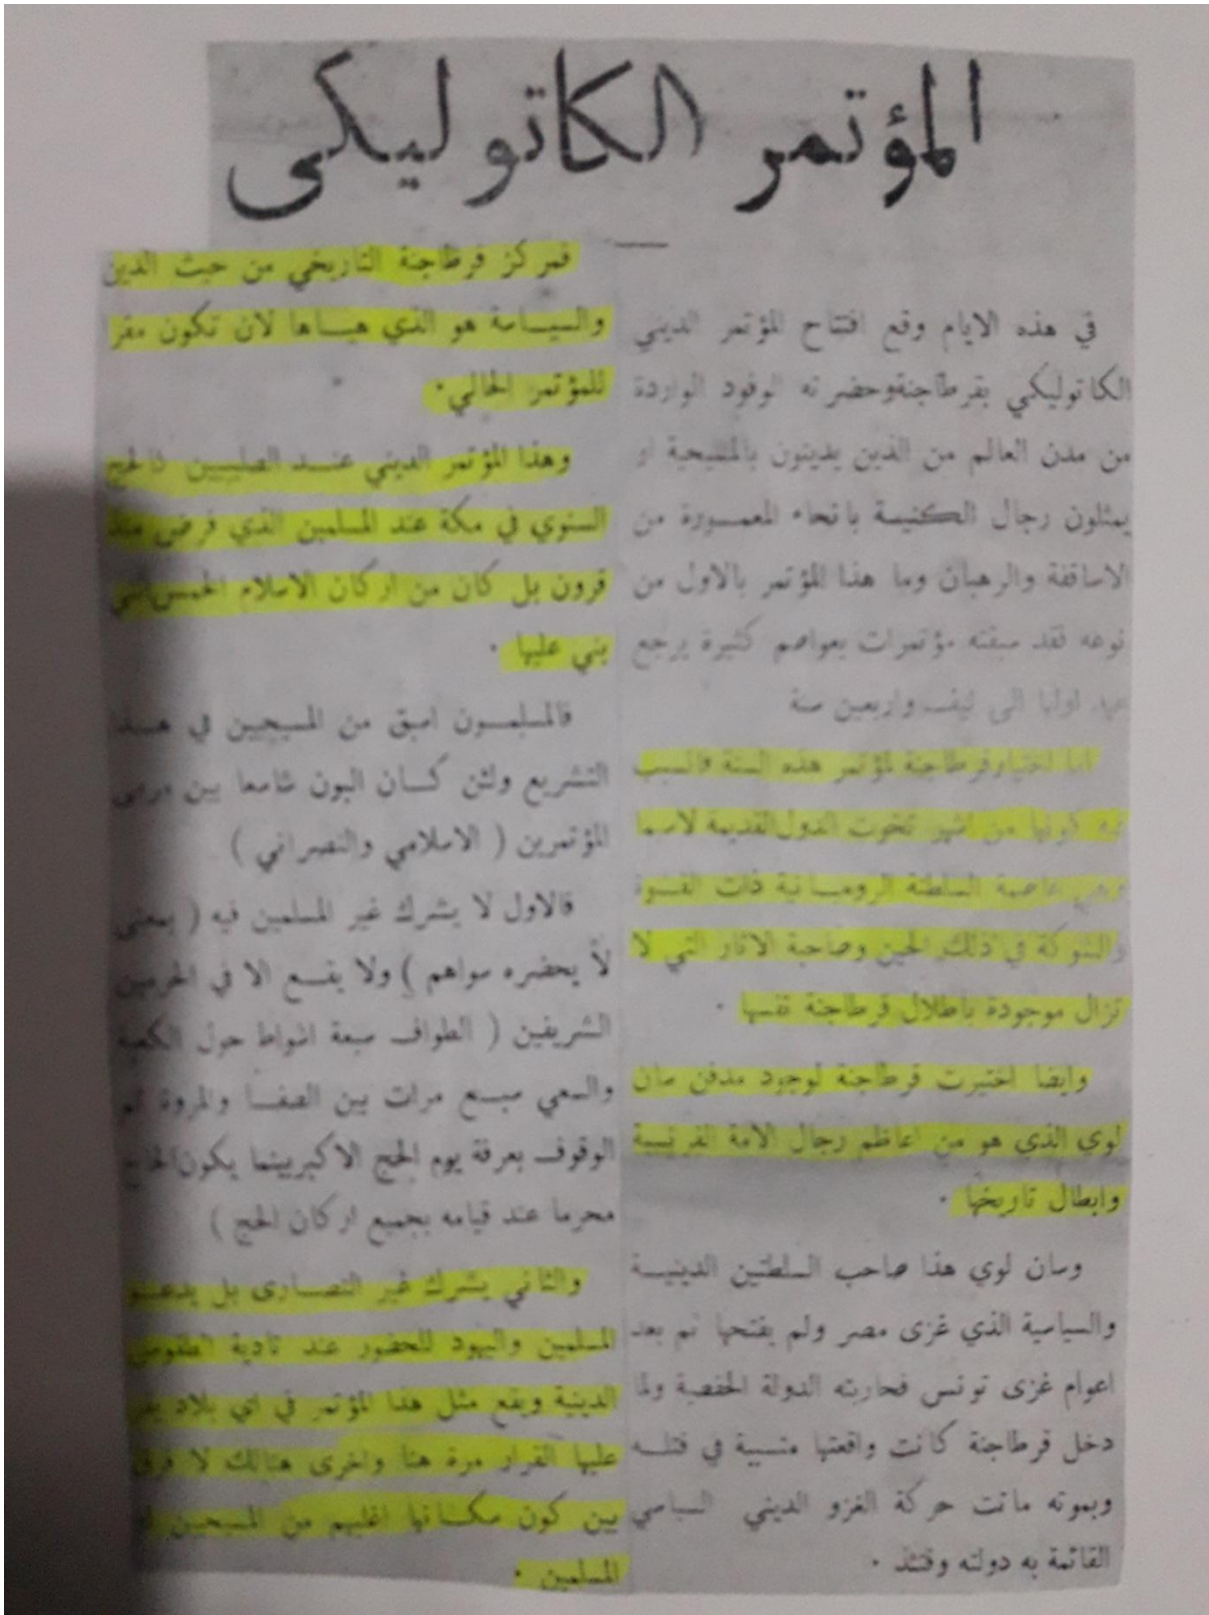 المؤتمر الكاتوليكي
في هذه الايام وقع افتتاح المؤتمر الديني
الكاتوليكي بقرطاجنة وحضرته الوفود الواردة
من مدن العالم من الذين يدينون بالمسيحية او
يمثلون رجال الكنيسة بانحاء المعمورة من
الاساقفة والرهبان وما هذا المؤتمر بالاول من
نوعه فقد سبقته مؤتمرات بعواصم كثيرة يرجع
عهد اولها الى نيف واربعين سنة
اما اختيار قرطاجنة لمؤتمر هذه السنة فالسبب
كونها من اشهر تخوت الدول القديمة لاسيما
وهي عاصمة السلطنة الرومانية ذات القوة
والشوكة في ذلك الحين وصاحبة الاثار التي لا
تزال موجودة باطلال قرطاجنة نفسها .
وايضا اختيرت قرطاجنة لوجود مدفن سان
لوي الذي هو من اعاظم رجال الامة الفرنسية
وابطال تاريخها .
وسان لوي هذا صاحب السلطتين الدينية
والسياسية الذي غزى مصر ولم يفتحها ثم بعد
اعوام غزى تونس فحاربته الدولة الحفصية ولما
دخل قرطاجنة كانت واقعتها متسببة في قتله
وبموته ماتت حركة الغزو الديني السياسي
القائمة به دولته وقتئذ .
فمركز قرطاجنة التاريخي من حيث الدين
والسياسة هو الذي هياها لان تكون مقر
للمؤتمر الحالي .
وهذا المؤتمر الديني عند الصليبين كالحج
السنوي في مكة عند المسلمين الذي فرض منذ
قرون بل كان من اركان الاسلام الخمس التي
بني عليها .
فالمسلمون اسبق من المسيحين في هذا
التشريع ولئن كان البون شاسعا بين مرمى
المؤتمرين ( الاسلامي والنصراني )
فالاول لا يشرك غير المسلمين فيه ( بمعنى
لا يحضره سواهم ) ولا يقع الا في الحرمين
الشريفين ( الطواف سبعة اشواط حول الكعبة
والسعي سبع مرات بين الصفا والمروة ثم
الوقوف بعرفة يوم الحج الاكبر بينما يكون الحاج
محرما عند قيامه بجميع اركان الحج )
والثاني يشرك غير النصارى بل يدعو
المسلمين واليهود للحضور عند تادية الطقوس
الدينية ويقع مثل هذا المؤتمر في اي بلاد يقر
عليها القرار مرة هنا واخرى هنالك لا فرق
بين كون سكانها اغلبهم من المسيحين او
المسلمين .